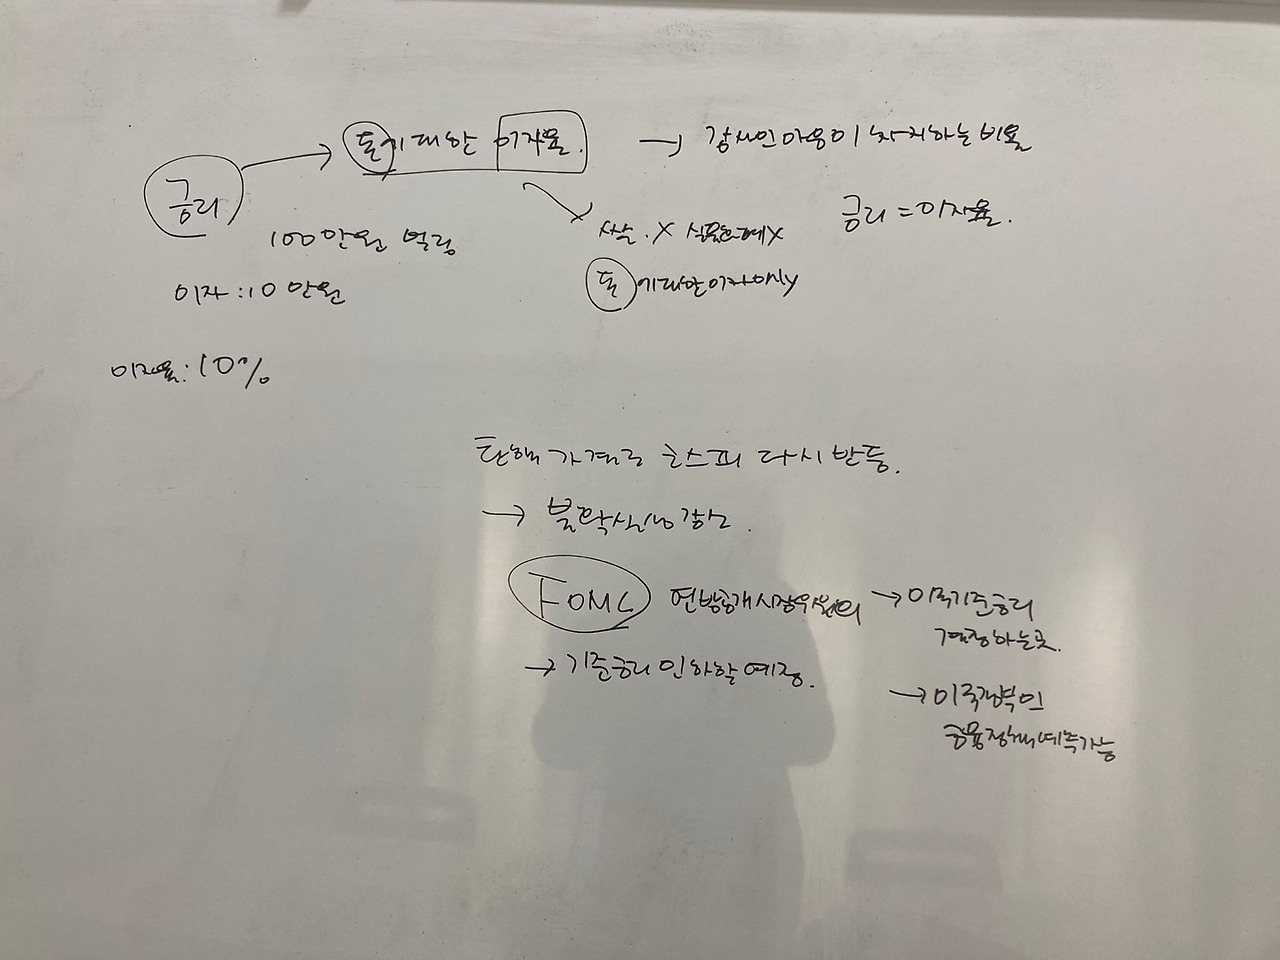 금리 → 돈에 대한 이자율. → 감사인 마음이 차지하는 비율
100만원 빌림
쌀. X 식용유에 X
금리 = 이자율.
이자 : 10만원
돈에 대한 이자 only
이자율 : 10%
탄핵 가결로 코스피 다시 반등.
→ 불확실성 감소.
FOMC 연방공개시장위원회 → 미국 기준금리
결정하는 곳.
→ 기준금리 인하할 예정.
→ 미국정부의
금융정책 예측가능